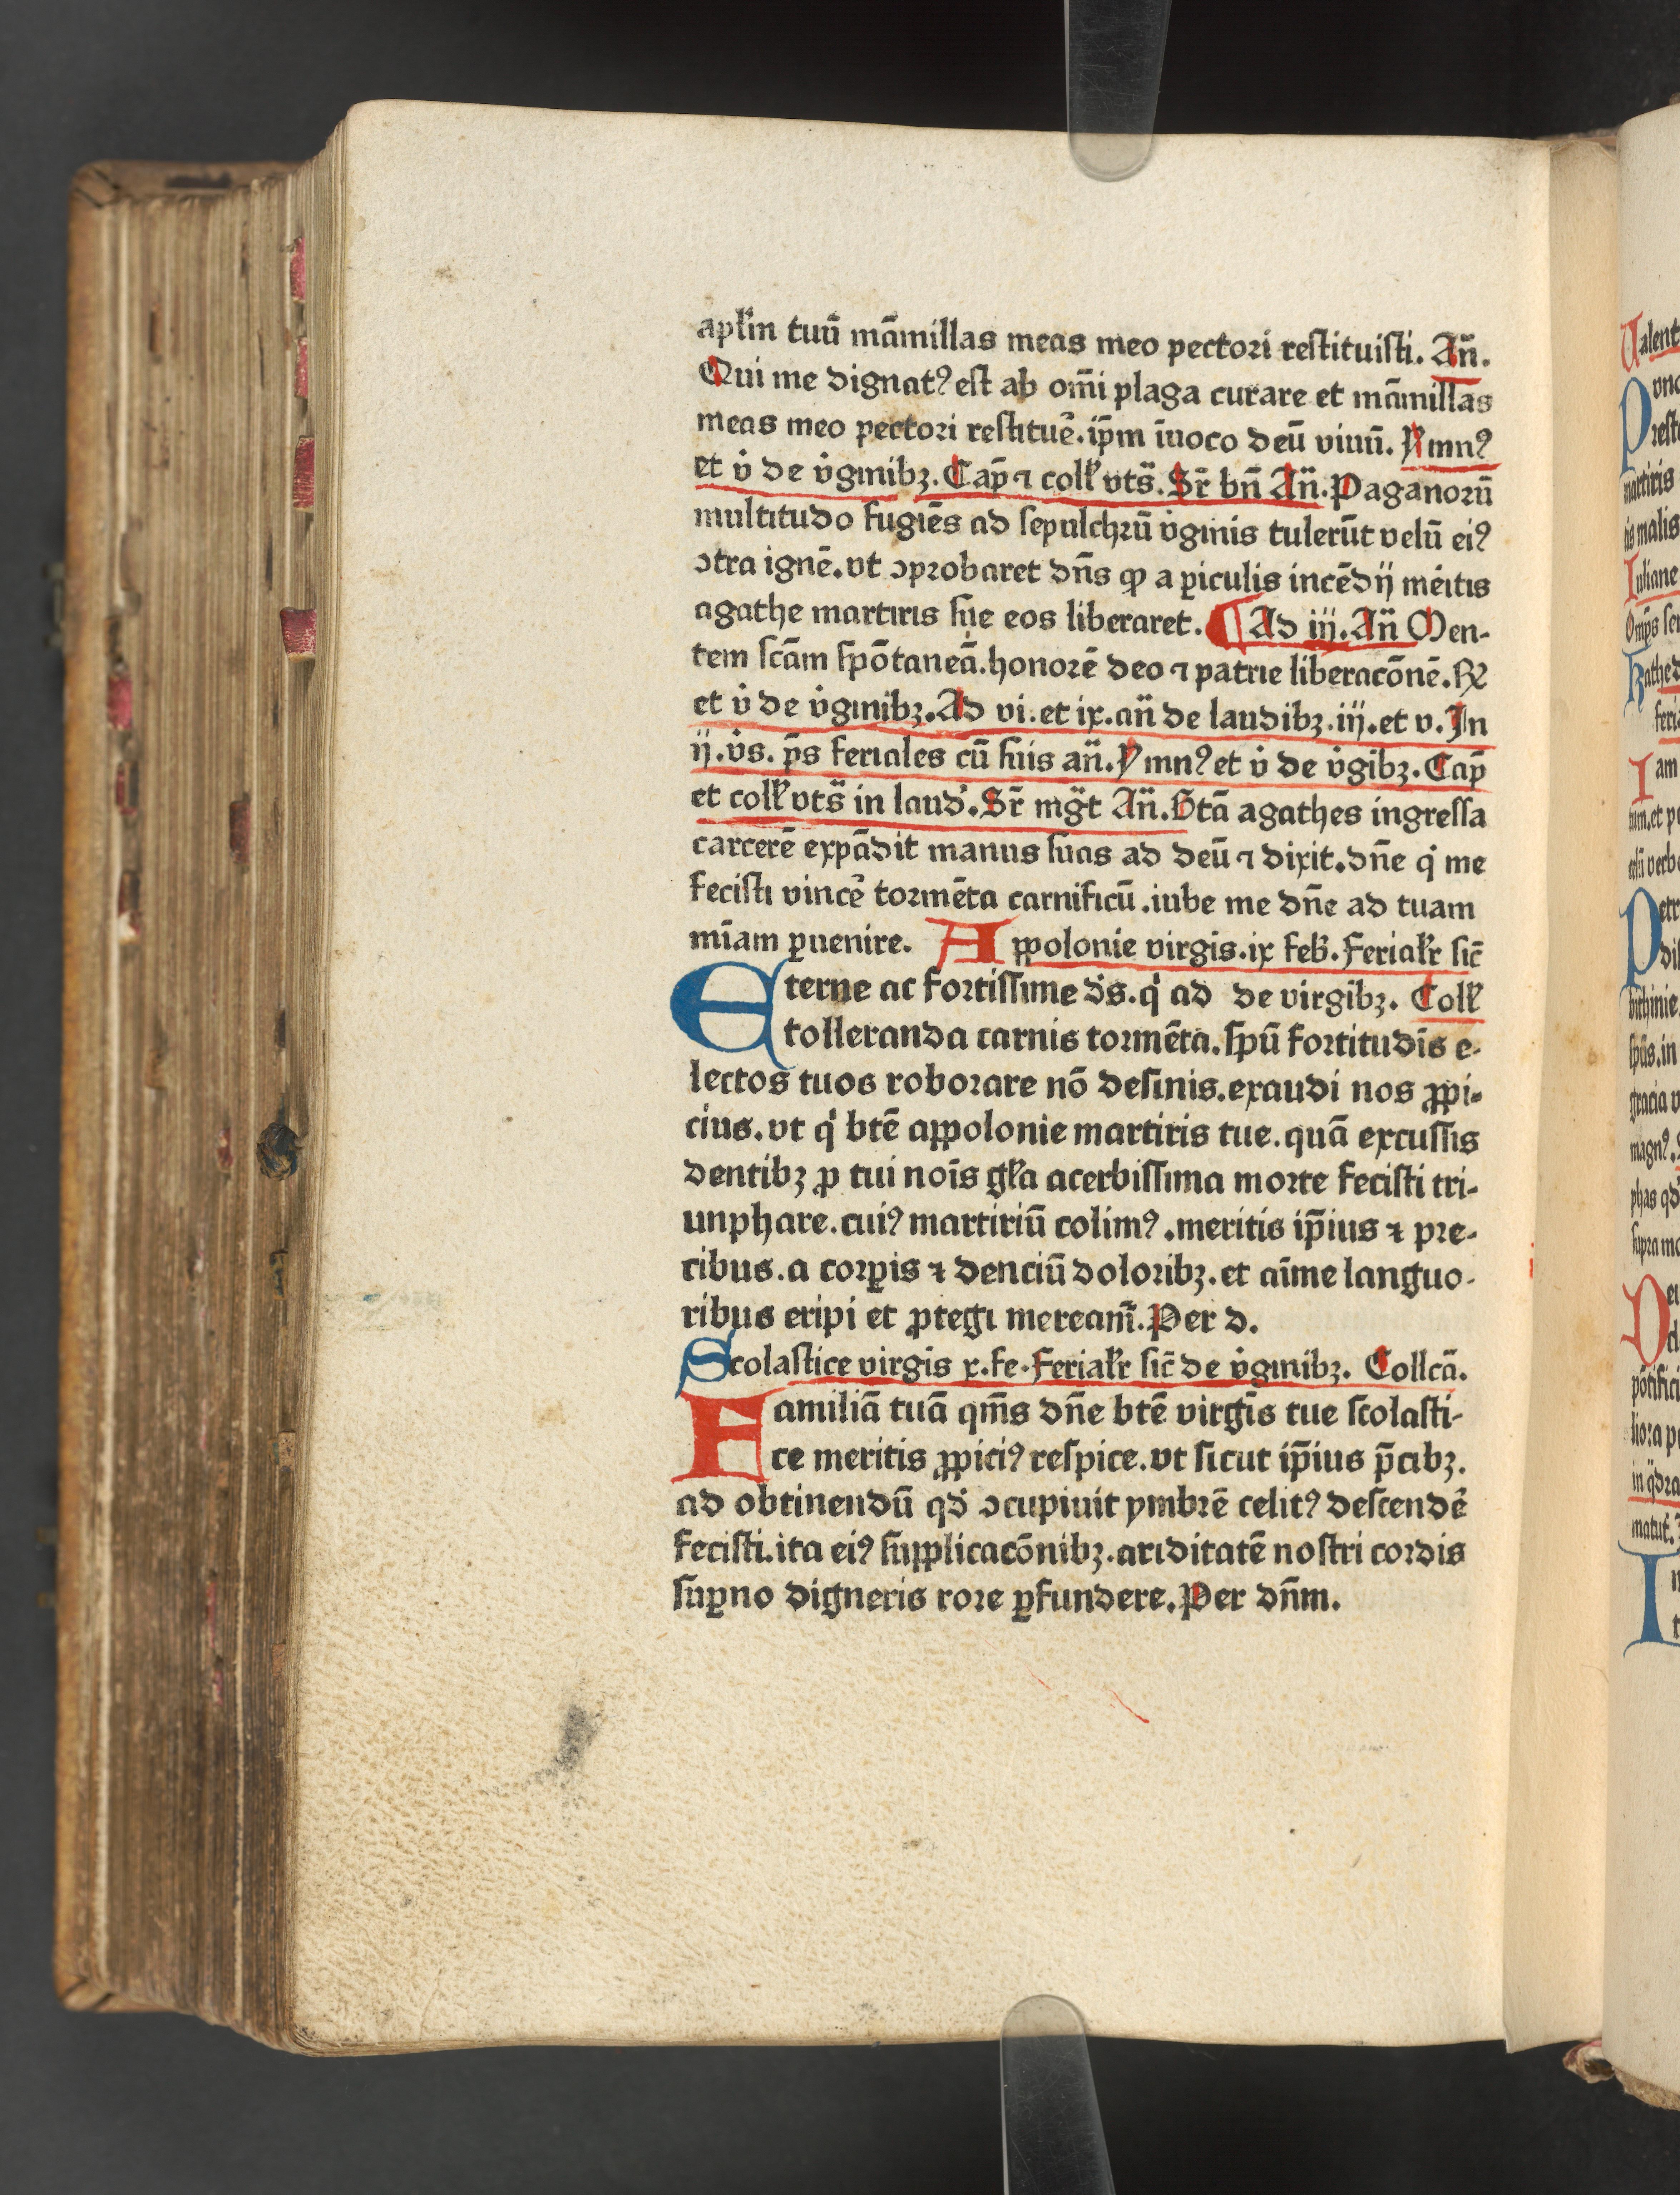 apl̄m tuū māmillas meas meo pectori restituisti. An̄.
Qui me dignatꝰ est ab om̄i plaga curare et māmillas
meas meo pectori restitue᷑. ip̄m īuoco deū viuū. Ymnꝰ
et v̇ de v̇ginibꝫ. Cap̄ ⁊ coll̄ vts̄. Sr̄ bn̄ An̄. Paganorū
multitudo fugiēs ad sepulchrū v̇ginis tulerūt velū eiꝰ
ꝯtra ignē. vt ꝯprobaret dn̄s ꝙ a ꝑiculis incēdij meītis
agathe martiris sue eos liberaret. ¶ Ad iij. An̄ Men-
tem scām spōtaneā. honorē deo ⁊ patrie liberacōnē. ꝶ
et v̇ de v̇ginibꝫ. Ad vi. et ix. an̄ de laudibꝫ. iij. et v. In
ij. v̇s. p̄s feriales cū suis an̄. Ymnꝰ et v̇ de v̇gibꝫ. Cap̄
et coll̄ vts̄ in laud᷑. Sr̄ mg̈t An̄. Btā agathes ingressa
carcerē expādit manus suas ad deū ⁊ dixit. dn̄e q̇ me
fecisti vince᷑ tormēta carnificū. iube me dn̄e ad tuam
mīam ꝑuenire. Aꝓpolonie virgis. ix feb᷑. Ferial̄r sic̄
Eterne ac fortissime ds̄. q̇ ad de virgibꝫ. Coll̄
tolleranda carnis tormēta. spū fortitudīs e-
lectos tuos roborare nō desinis. exaudi nos ꝓpi-
cius. vt q̇ btē appolonie martiris tue. quā excussis
dentibꝫ ꝓ tui noīs gl̄a acerbissima morte fecisti tri-
unphare. cuiꝰ martiriū colimꝰ. meritis ip̄ius ⁊ pre-
cibus. a corꝑis ⁊ denciū doloribꝫ. et aīme languo-
ribus eripi et ꝓtegi meream̄. Per d.
Scolastice virgīs x. fe. Ferial̄r sic̄ de v̇ginibꝫ. Collcā.
Familiā tuā qm̄s dn̄e btē virgīs tue scolasti-
ce meritis ꝓpiciꝰ respice. vt sicut ip̄ius p̄cibꝫ.
ad obtinendū qd̄ ꝯcupiuit ymbrē celitꝰ descende᷑
fecisti. ita eiꝰ supplicacōnibꝫ. ariditatē nostri cordis
suꝑno digneris rore ꝑfundere. Per dn̄m.